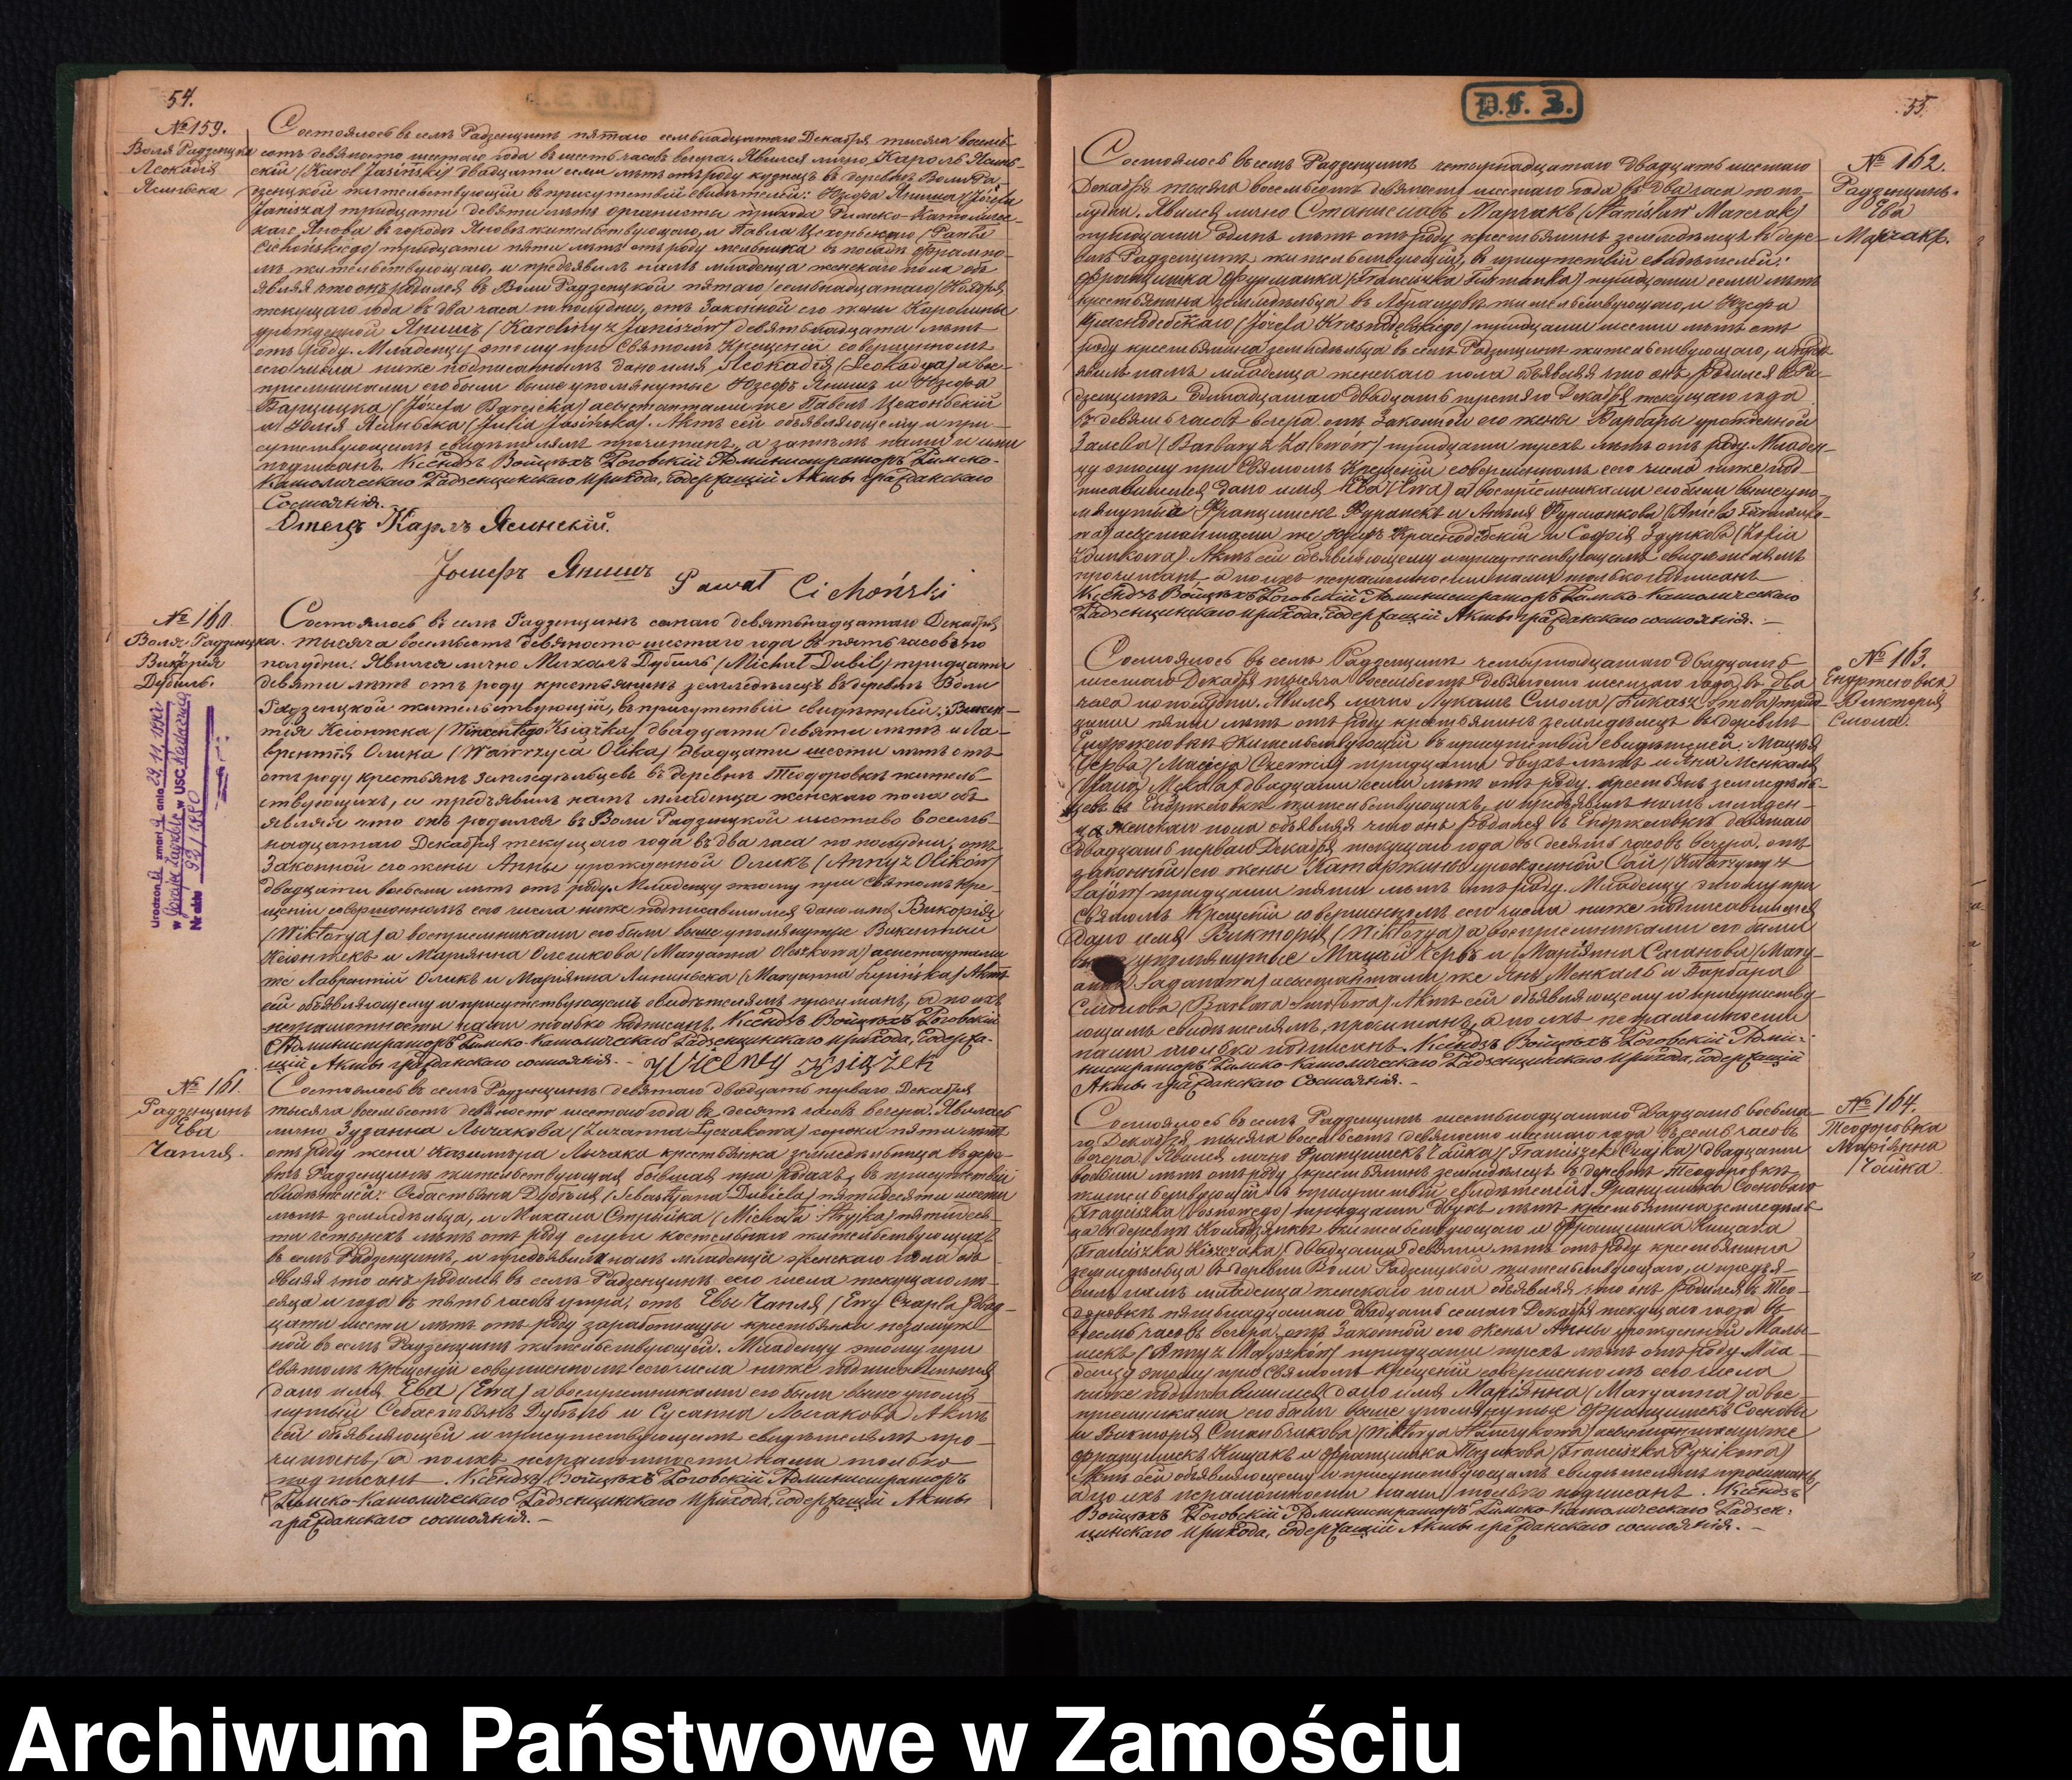 54.
№ 159.
Воля Радзецка
Леокадія
Ясиньска
Состоялось въ селѣ Радзенцинѣ пятаго семьнадцатаго Декабря тысяча восемь-
сотъ девяносто шестаго года въ шесть часовъ вечера. Явился лично, Кароль Ясинь-
скій (Karol Jasiński) двадцати семи лѣтъ отъ роду кузнецъ въ деревнѣ Воли Ра-
дзецкой жительствующій въ присутствіи свидѣтелей: Юзефа Яниша (Józefa
Janisza) тридцати девяти лѣтъ органисты прихода Римско-Католичес-
каго Янова въ городѣ Яновѣ жительствующаго, и Павла Цехоньскаго (Pawła
Cichońskiego) тридцати пяти лѣтъ отъ роду мельника въ посадѣ Фрампо-
лѣ жительствующаго, и предъявилъ намъ младенца женскаго пола объ
являя что онъ родился въ Воли Радзецкой пятаго семьнадцатаго Ноября
текущаго года въ два часа по полудни, отъ Законной его жены Каролины
урожденной Янишъ (Karoliny z Janiszów) девятьнадцати лѣтъ
отъ роду. Младенцу этому при Святомъ Крещеніи совершенномъ
сего числа ниже подписаннымъ дано имя Леокадія (Leokadya) а вос-
пріемниками его были выше упомянутые Юзефъ Янишъ и Юзефа
Барщицка (Józefa Barcicka) асыстантами же Павелъ Цехоньскій
и Юлія Ясиньска (Julia Jasińska). Актъ сей объявляющему и при-
сутствующимъ свидѣтелямъ прочитанъ, а затѣмъ нами и ими
подписанъ. Ксёндзъ Войцѣхъ Роговскій Администраторъ Римско-
Католическаго Радзенцинскаго Прихода, содержащій Акты гражданскаго
Состоянія.
Отецъ Карлъ Ясинскій.
Іосифъ Янишъ Paweł Cichoński
№ 160
Воля-Радзецка.
Викторія
Дубиль.
Состоялось въ селѣ Радзенцинѣ седьмаго девятьнадцатаго Декабря
тысяча восемьсотъ девяносто шестаго года въ пять часовъ по
полудни. Явился лично Михалъ Дубиль (Michał Dubil) тридцати
девяти лѣтъ отъ роду крестьянинъ земледѣлецъ въ деревнѣ Воли
Радзецкой жительствующій, въ присутствіи свидѣтелей: Викен-
тія Ксіонжка (Wincentego Książka) двадцати девяти лѣтъ и Ла-
врентія Олика (Wawrzyca Olika) двадцати шести лѣтъ отъ
отъ роду крестьянъ земледѣльцевъ въ деревнѣ Теодоровкѣ житель-
ствующихъ, и предъявилъ намъ младенца женскаго пола объ
являя что онъ родился въ Воли Радзецкой шестаго восемь-
надцатаго Декабря текущаго года въ два часа по полудни, отъ
Законной его жены Анны урожденной Оликъ (Anny z Olików)
двадцати восьми лѣтъ отъ роду. Младенцу этому при святомъ кре-
щеніи совершенномъ сего числа ниже подписавшимся дано имя Викторія
(Wiktorya) а воспріемниками его были выше упомянутые Викентій
Ксіонжекъ и Маріянна Олешкова (Maryanna Oleszkowa) асистантами
же Лаврентій Оликъ и Маріянна Липиньска (Maryanna Lipińska) Актъ
сей объявляющему и присутствующимъ свидѣтелямъ прочитанъ, а по ихъ
неграмотности нами только подписанъ. Ксёндзъ Войцѣхъ Роговскій
Администраторъ Римско-Католическаго Радзенцинскаго Прихода, содержа-
щій Акты гражданскаго состоянія. - Wicenty Książek
urodzon a zmarł a dnia 29.11.1990
w USC
Nr aktu 92/1990
№ 161
Радзенцинъ
Ева
Чапля.
Состоялось въ селѣ Радзенцинѣ девятаго двадцать перваго Декабря
тысяча восемьсотъ девяносто шестаго года въ десять часовъ вечера. Явилась
лично Зузанна Лычакова (Zuzanna Łyczakowa) сорока пяти лѣтъ
отъ роду жена Казимѣра Лычака крестьянка земледѣлица въ дерев-
внѣ Радзенцинѣ жительствующая бывшая при родахъ, въ присутствіи
свидѣтелей: Себастьяна Дубѣля (Sebastyana Dubiela) пятидесяти шести
лѣтъ земледѣльца, и Михала Стрыйка (Michała Stryjka) пятидеся-
ти четырехъ лѣтъ отъ роду слуги костельнаго жительствующихъ
въ селѣ Радзенцинѣ, и предъявила намъ младенца женскаго пола объ
являя что онъ родился въ селѣ Радзенцинѣ сего числа текущаго мѣ-
сяца и года въ пять часовъ утра, отъ Евы Чапля (Ewy Czapla) двад-
цати шести лѣтъ отъ роду заработницы крестьянки незамуж-
ной въ селѣ Радзенцинѣ жительствующей. Младенцу этому при
Святомъ Крещеніи совершенномъ сего числа ниже подписавшимся
дано имя Ева (Ewa) а воспріемниками его были выше упомя-
нутый Себастьянъ Дубѣль и Сусанна Лычакова Актъ
сей объявляющей и присутствующимъ свидѣтелямъ про-
читанъ, а по ихъ неграмотности нами только
подписанъ. Ксёндзъ Войцѣхъ Роговскій Администраторъ
Римско-Католическаго Радзенцинскаго Прихода, содержащій Акты
гражданскаго состоянія. -
D.f. 3.
55.
№ 162.
Радзенцинъ.
Ева
Марчакъ.
Состоялось въ селѣ Радзенцинѣ четырнадцатаго двадцать шестаго
Декабря тысяча восемьсотъ девяносто шестаго года въ два часа по по-
лудни. Явился лично Станиславъ Марчакъ (Stanisław Marczak)
тридцати одинъ лѣтъ отъ роду крестьянинъ земледѣлецъ въ дере-
внѣ Радзенцинѣ жительствующій, въ присутствіи свидѣтелей:
Францишка Фурманка (Franciszka Furmanka) тридцати семи лѣтъ
крестьянина земледѣльца въ Абрамовѣ жительствующаго, и Юзефа
Краснодебскаго (Józefa Krasnodębskiego) тридцати шести лѣтъ отъ
роду крестьянина земледѣльца въ селѣ Радзенцинѣ жительствующаго, и предъ-
явилъ намъ младенца женскаго пола объявляя что онъ родился въ Ра-
дзенцинѣ одиннадцатаго двадцать третяго Декабря текущаго года
въ девять часовъ вечера, отъ Законной его жены Варвары урожденной
Залева (Barbary z Zalewów) тридцати трехъ лѣтъ отъ роду. Младен-
цу этому при Святомъ Крещеніи совершенномъ сего числа ниже под-
писавшимся дано имя Ева (Ewa) а воспріемниками его были выше упо-
мянутый Францишекъ Фурманекъ и Анѣля Фурманкова (Aniela Furmanko-
wa) асыстантами же Юзефъ Краснодебскій и Софія Здункова (Zofia
Zdunkowa). Актъ сей объявляющему и присутствующимъ свидѣтелямъ
прочитанъ, а по ихъ неграмотности нами только подписанъ
Ксёндзъ Войцѣхъ Роговскій Администраторъ Римско-Католическаго
Радзенцинскаго Прихода, содержащій Акты гражданскаго состоянія. -
№ 163.
Ендржеювка
Викторія
Смола.
Состоялось въ селѣ Радзенцинѣ четырнадцатаго двадцать
шестаго Декабря тысяча восемьсотъ девяносто шестаго года, въ два
часа по полудни. Явился лично Лукашъ Смола (Łukasz Smoła) трид-
цати пяти лѣтъ отъ роду крестьянинъ земледѣлецъ въ деревнѣ
Ендржеювкѣ жительствующій въ присутствіи свидѣтелей: Мацѣя
Черва (Macieja Czerwa) тридцати двухъ лѣтъ и Яна Менкаля
двадцати семи лѣтъ отъ роду крестьянъ земледѣль-
цевъ въ Ендржеювкѣ жительствующихъ, и предъявилъ намъ младен-
ца женскаго пола объявляя что онъ родился въ Ендржеювкѣ девятаго
двадцать перваго Декабря текущаго года въ десять часовъ вечера, отъ
законной его жены Катаржины урожденной Сай (Katarzyny z
Sajów) тридцати пяти лѣтъ отъ роду. Младенцу этому при
Святомъ Крещеніи совершенномъ сего числа ниже подписавшимся
дано имя Викторія (Wiktorya) а воспріемниками его были
упомянутые Мацѣй Червъ и Маріянна Саганова (Mary-
anna Saganowa) асыстантами же Янъ Менкаль и Барбара
Смолова (Barbara Smołowa). Актъ сей объявляющему и присутству-
ющимъ свидѣтелямъ, прочитанъ, а по ихъ неграмотности
нами только подписанъ. Ксёндзъ Войцѣхъ Роговскій Адми-
нистраторъ Римско-Католическаго Радзенцинскаго Прихода, содержащій
Акты гражданскаго Состоянія. -
№ 164.
Теодоровка
Маріянна
Чайка
Состоялось въ селѣ Радзенцинѣ шестьнадцатаго двадцать восьма-
го Декабря, тысяча восемьсотъ девяносто шестаго года въ семь часовъ
вечера. Явился лично Францишекъ Чайка (Franciszek Czajka) двадцати
восьми лѣтъ отъ роду крестьянинъ земледѣлецъ въ деревнѣ Теодоровкѣ
жительствующій въ присутствіи свидѣтелей: Францишка Сосноваго
(Franciszka Sosnowego) тридцати двухъ лѣтъ крестьянина земледѣль-
ца въ деревнѣ Колодзянкѣ жительствующаго и Францишка Кищака
(Franciszka Kiszczaka) двадцати девяти лѣтъ отъ роду крестьянина
земледѣльца въ деревнѣ Воли Радзецкой жительствующаго, и предъя-
вилъ намъ младенца женскаго пола объявляя что онъ родился въ Тео-
доровкѣ пятьнадцатаго двадцать седьмаго Декабря текущаго года въ
восемь часовъ вечера, отъ Законной его жены Анны урожденной Малы-
шекъ (Anny z Małyszków) тридцати трехъ лѣтъ отъ роду. Мла-
денцу этому при Святомъ Крещеніи совершенномъ сего числа
ниже подписавшимся дано имя Маріянна (Maryanna) а вос-
пріемниками его были выше упомянутые Францишекъ Сосновы
и Викторія (Wiktorya) асыстантами же
Францишекъ Кищакъ и Францишка Пызикова (Franciszka Pyzikowa)
Актъ сей объявляющему и присутствующимъ свидѣтелямъ прочитанъ,
а по ихъ неграмотности нами только подписанъ. Ксёндзъ
Войцѣхъ Роговскій Администраторъ Римско-Католическаго Радзен-
цинскаго Прихода, содержащій Акты гражданскаго состоянія. -
Archiwum Państwowe w Zamościu